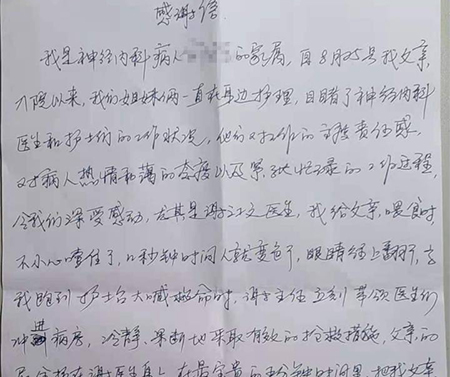 感谢信
我是神经内科病人 的家属,自8月25号我父亲
入院以来,我们姐妹俩一直在身边护理,目睹了神经内科
医生和护士们的工作状况,他们对工作的高度责任感,
对病人热情和蔼的态度以及紧张忙碌的工作过程,
令我们深受感动,尤其是谢 医生,我给父亲喂食时
不小心噎住了,几秒钟时间人就变色了,眼睛往上翻了,当
我跑到护士台大喊救命时,谢主任立刻带领医生们
冲进病房,冷静、果断地采取有效的抢救措施,父亲的
在谢医生身上,在最宝贵的 分钟时间里,把我父亲